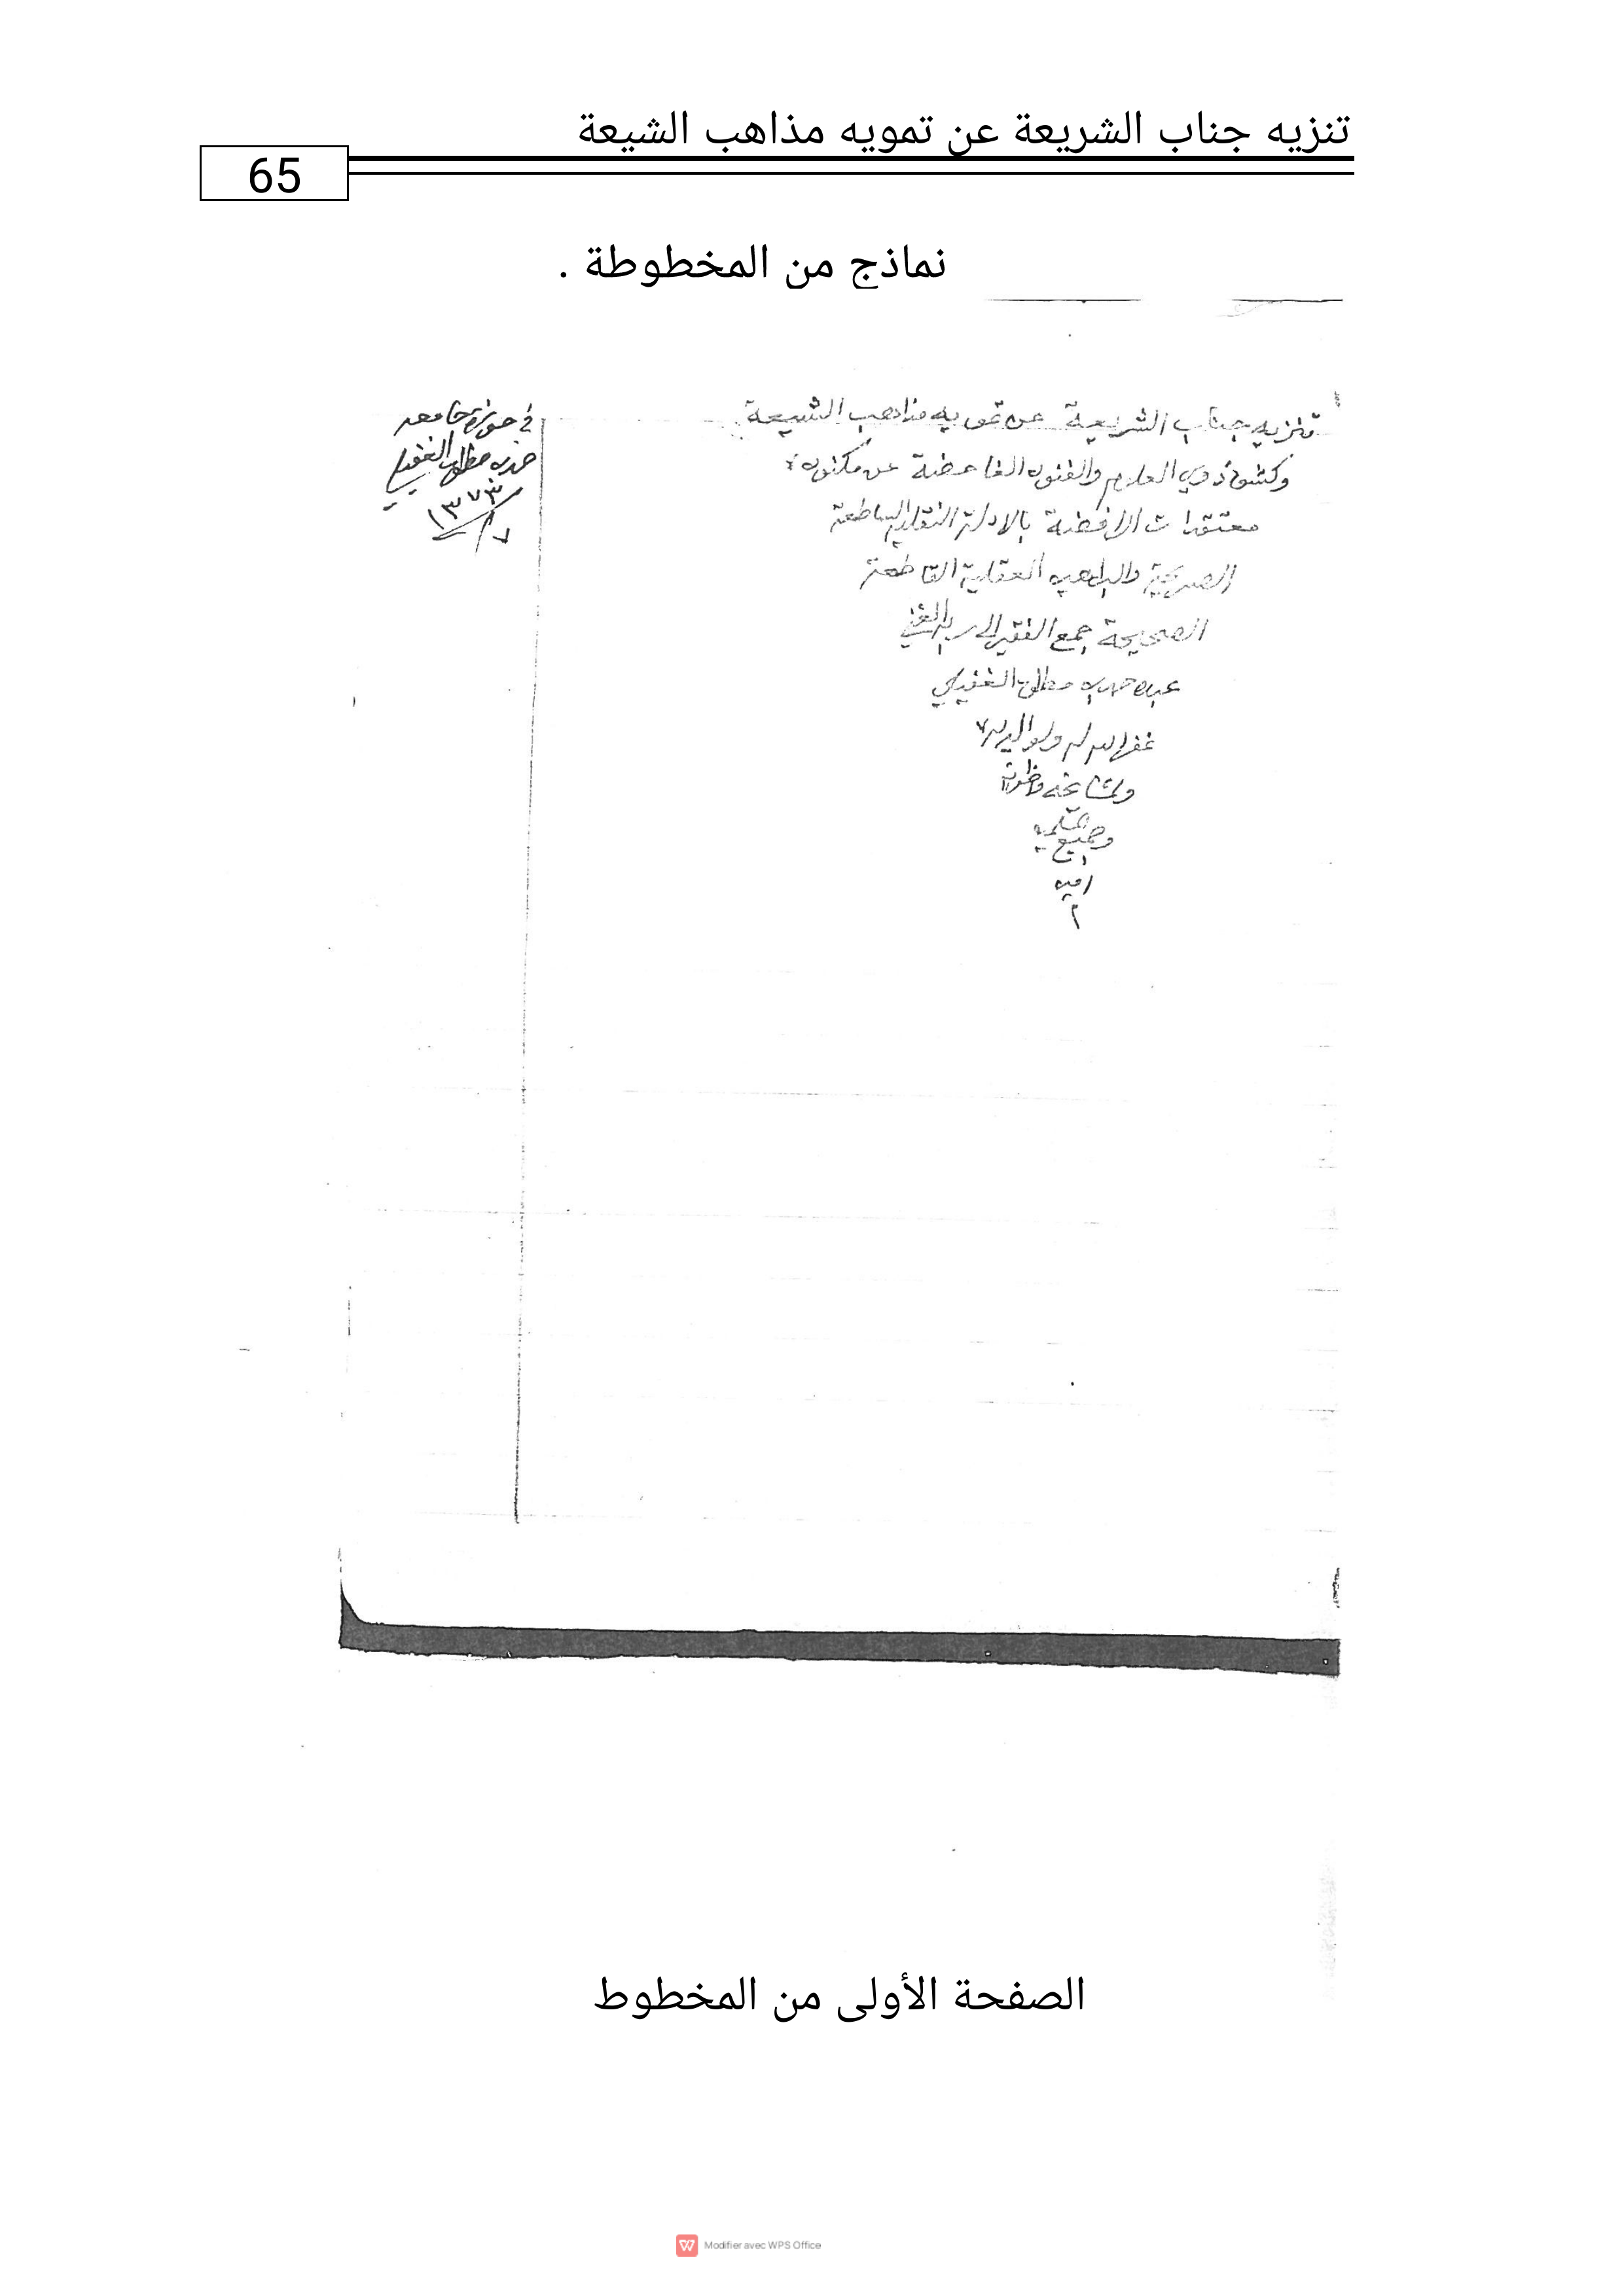 تنزيه جناب الشريعة عن تمويه مذاهب الشيعة
65
نماذج من المخطوطة .
تنزيه جناب الشريعة عن تمويه مذاهب الشيعة
وكشف ذوي العلوم والفنون الغامضة عن مكنون
معتقدات الرافضة بالادلة النقلية الساطعة
الصريحة والبراهين العقلية القاطعة
الصحيحة جمع الفقير الى ربه الغني
عبده حمدان مطلق الغفيلي
غفر الله له ولوالديه
ولمشايخه
وجميع المسلمين
امين
في حوزة جامعه
الغفيلي
١٣٧٣
الصفحة الأولى من المخطوط
Modifier avec WPS Office